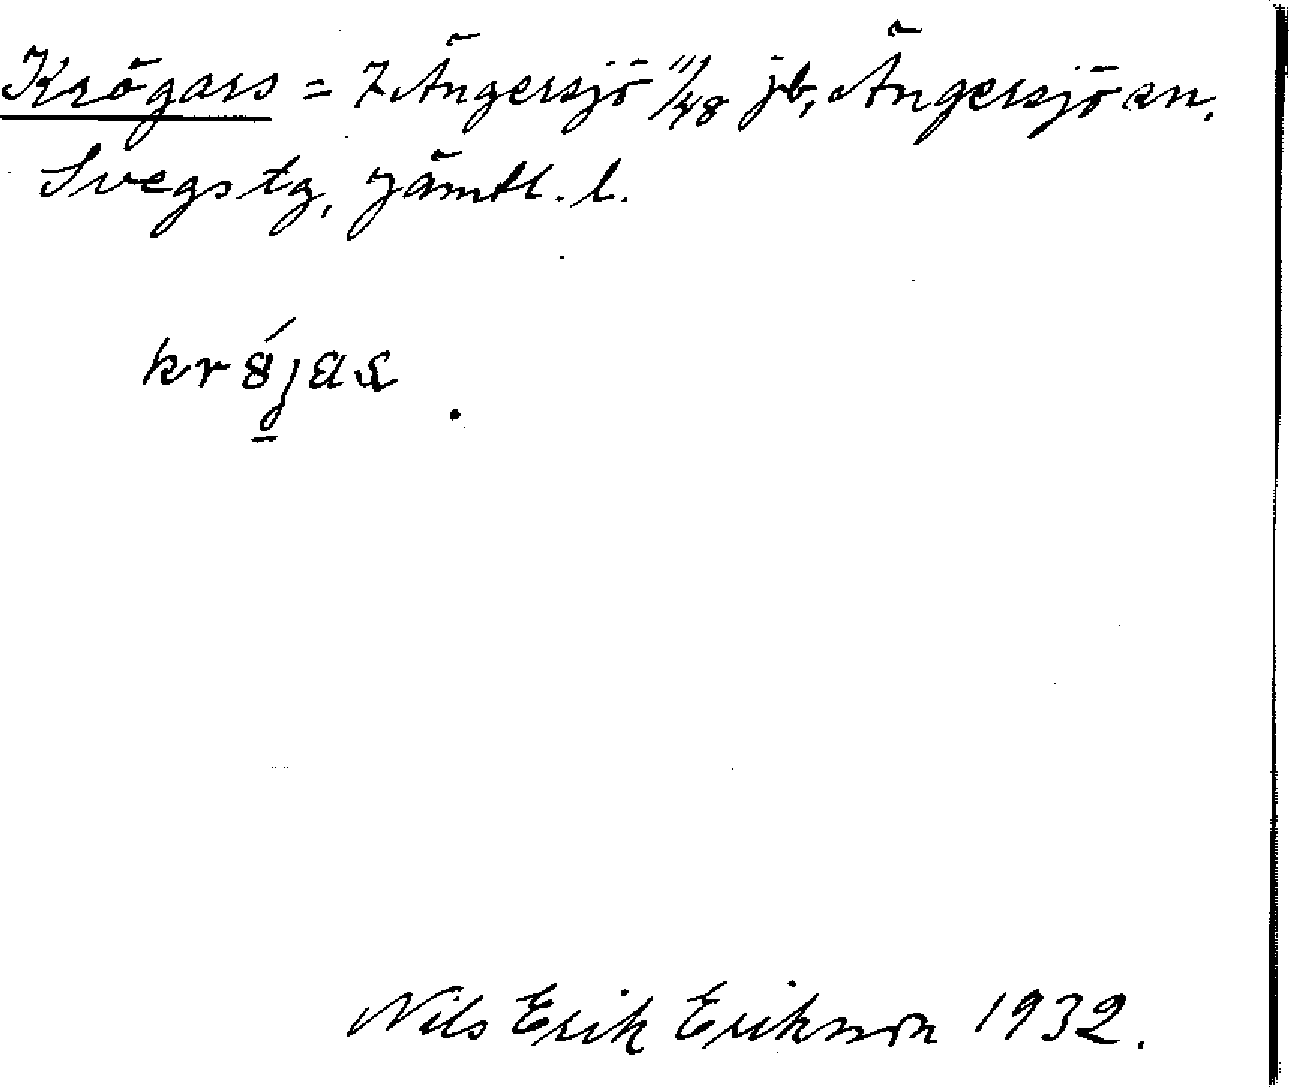 Krögars = 7 Ängersjö 11/48 jb, Ängersjö sn.
Svegs tg, Jämtl. l.
Nils Erik Erikson 1932.